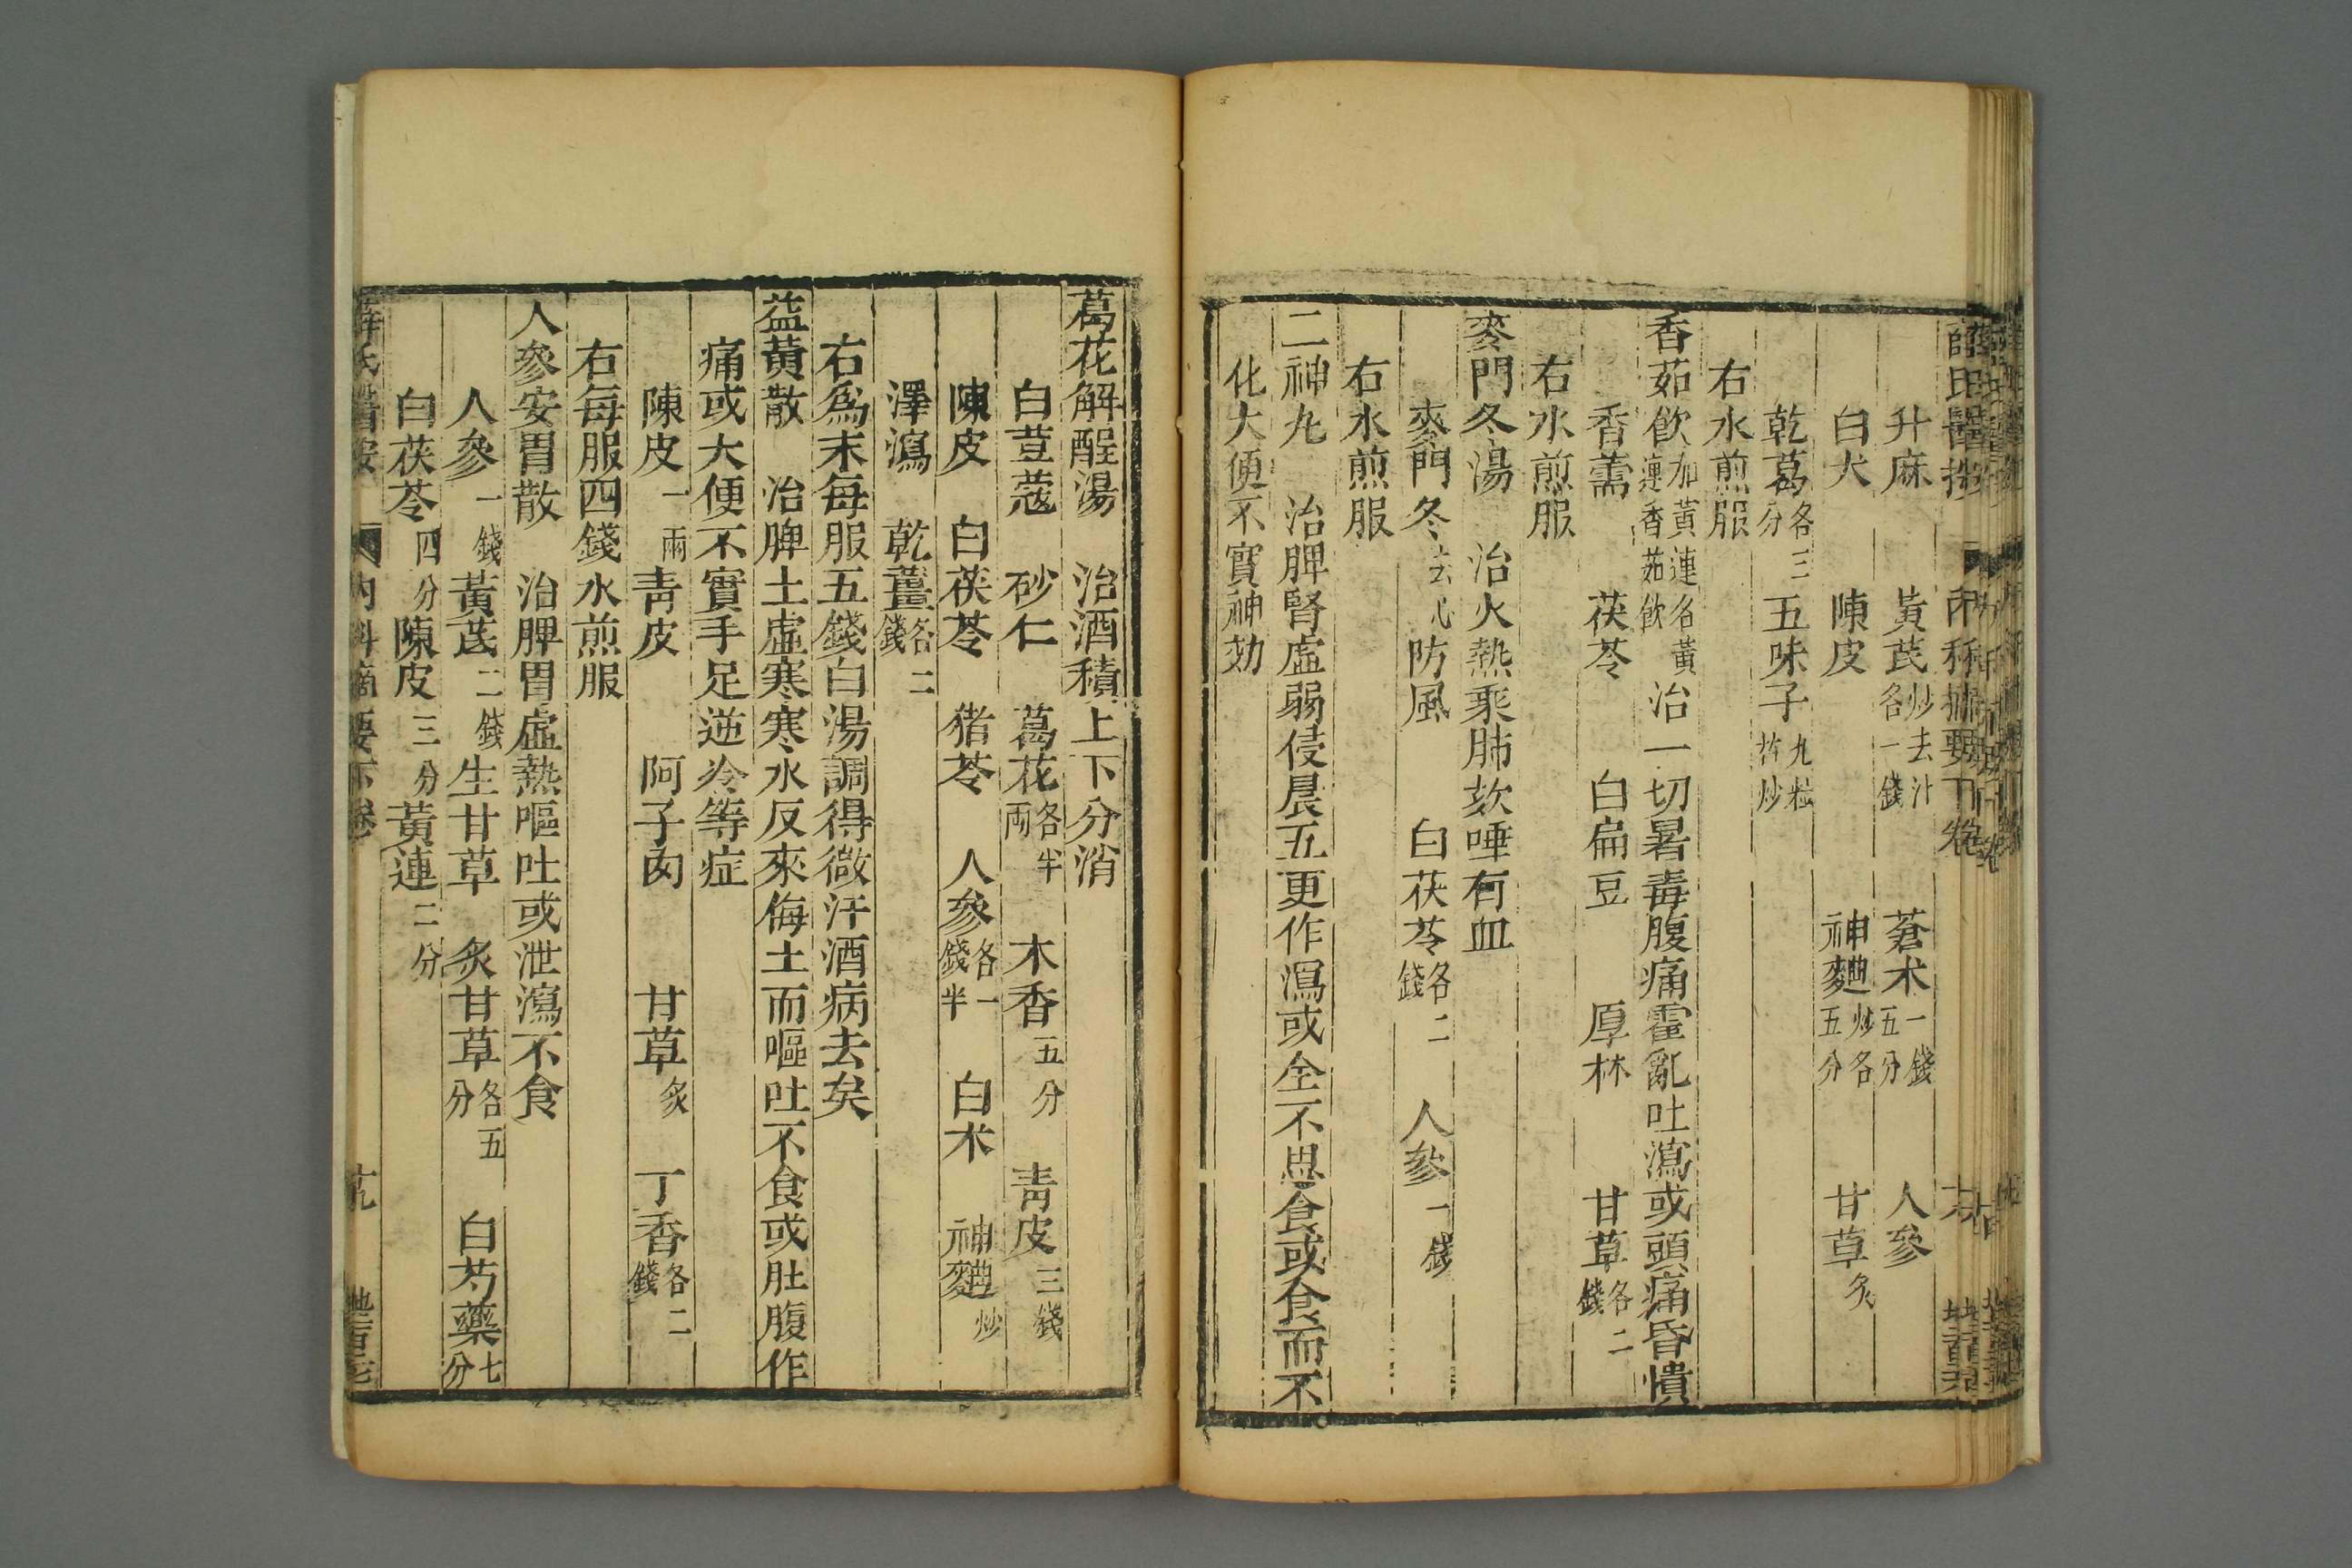 升麻 黃芪炒去汁各一錢 蒼朮一錢五分 人參
白朮 陳皮 神麯炒各五分 甘草炙
乾葛各三分 五味子九粒杵炒
右水煎服
香茹飲加黃連名黃連香茹飲 治一切暑毒腹痛霍亂吐瀉或頭痛昏憒
香薷 茯苓 白扁豆 厚朴 甘草各二錢
右水煎服
麥門冬湯 治火熱乘肺欬唾有血
麥門冬去心 防風 白茯苓各二錢 人參一錢
右水煎服
二神丸 治脾腎虛弱侵晨五更作瀉或全不思食或食而不
化大便不實神効
葛花解酲湯 治酒積上下分消
白荳蔻 砂仁 葛花各半兩 木香五分 靑皮三錢
陳皮 白茯苓 猪苓 人參各一錢半 白朮 神麯炒
澤瀉 乾薑各二錢
右爲末每服五錢白湯調得微汗酒病去矣
益黃散 治脾土虛寒寒水反來侮土而嘔吐不食或肚腹作
痛或大便不實手足逆冷等症
陳皮一兩 靑皮 阿子肉 甘草炙 丁香各二錢
右每服四錢水煎服
人參安胃散 治脾胃虛熱嘔吐或泄瀉不食
人參一錢 黃芪二錢 生甘草 炙甘草各五分 白芍藥七分
白茯苓四分 陳皮三分 黃連二分
薛氏醫按 內科摘要下卷 十九